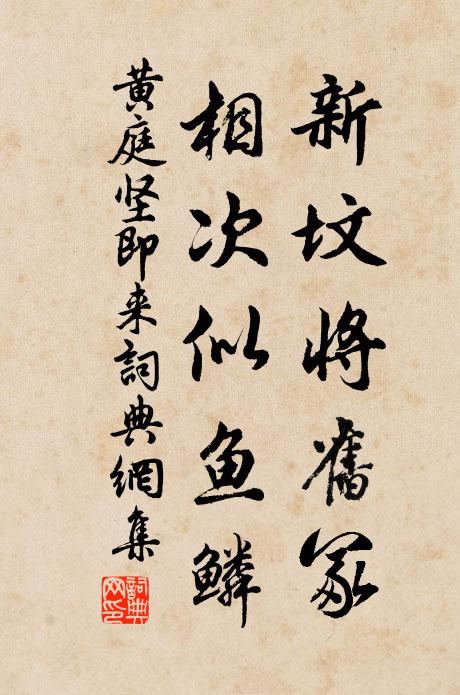 新坟将舊冢
相次似鱼鳞
黄庭坚即来詞典網集
詞典
网印